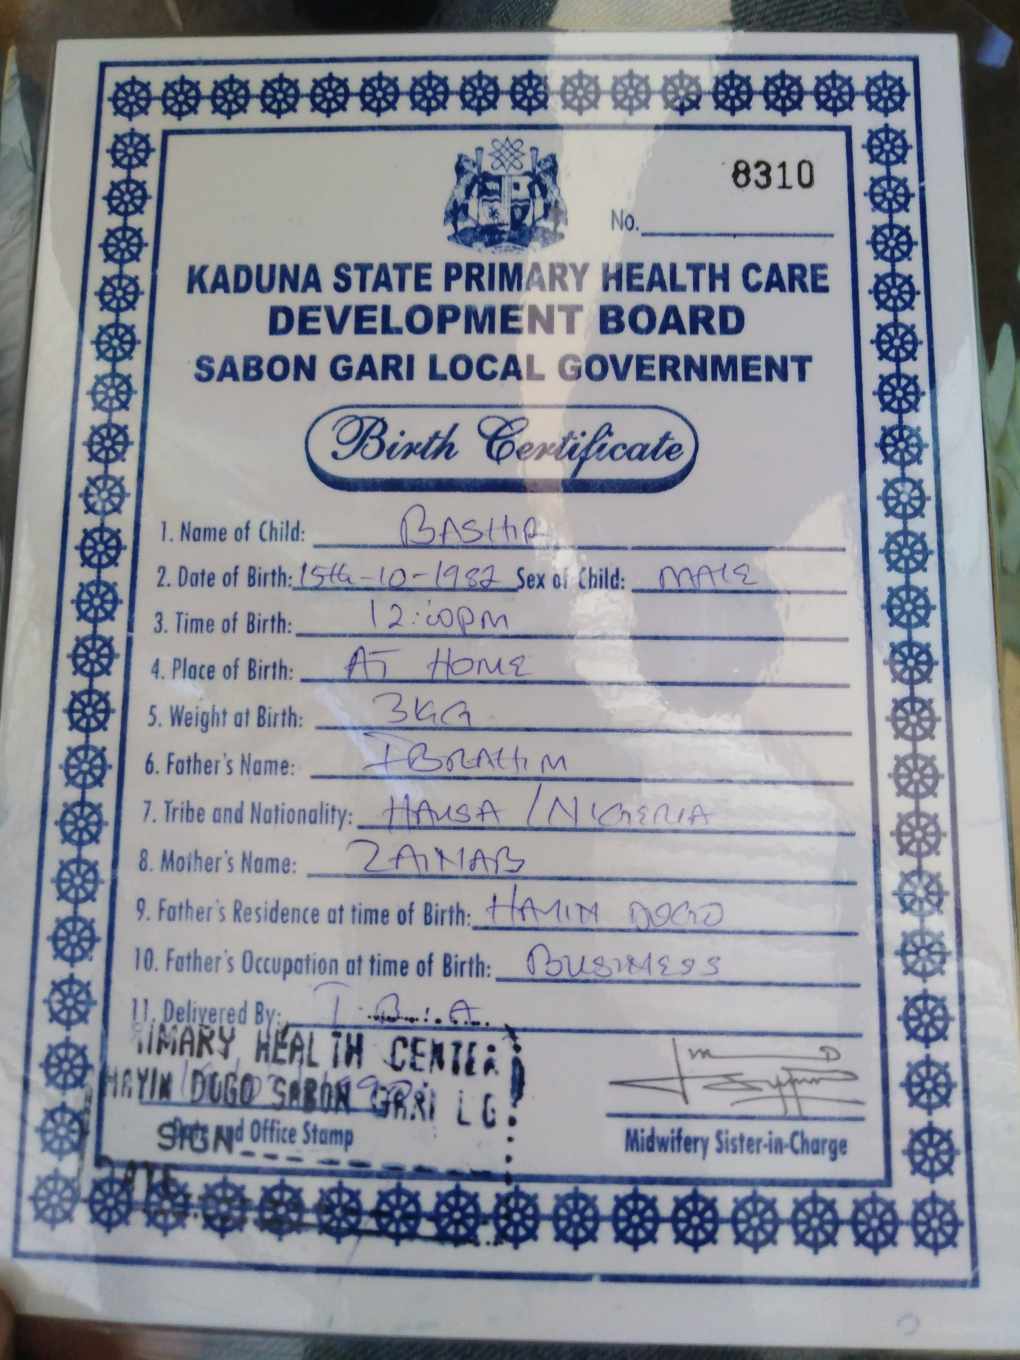 8310
No.
KADUNA STATE PRIMARY HEALTH CARE
DEVELOPMENT BOARD
SABON GARI LOCAL GOVERNMENT
Birth Certificate
1. Name of Child: BASHIR
2. Date of Birth: 15th-10-1982 Sex of Child: MALE
3. Time of Birth: 12:00pm
4. Place of Birth: AT HOME
5. Weight at Birth: 3KG
6. Father's Name: IBRAHIM
7. Tribe and Nationality: HAUSA / NIGERIA
8. Mother's Name: ZAINAB
9. Father's Residence at time of Birth: HAYIN DOGO
10. Father's Occupation at time of Birth: BUSINESS
11. Delivered By: T.B.A.
IMARY HEALTH CENTER
HAYIN DOGO SABON GARI L G
SIGN
Date and Office Stamp
Midwifery Sister-in-Charge
DATE